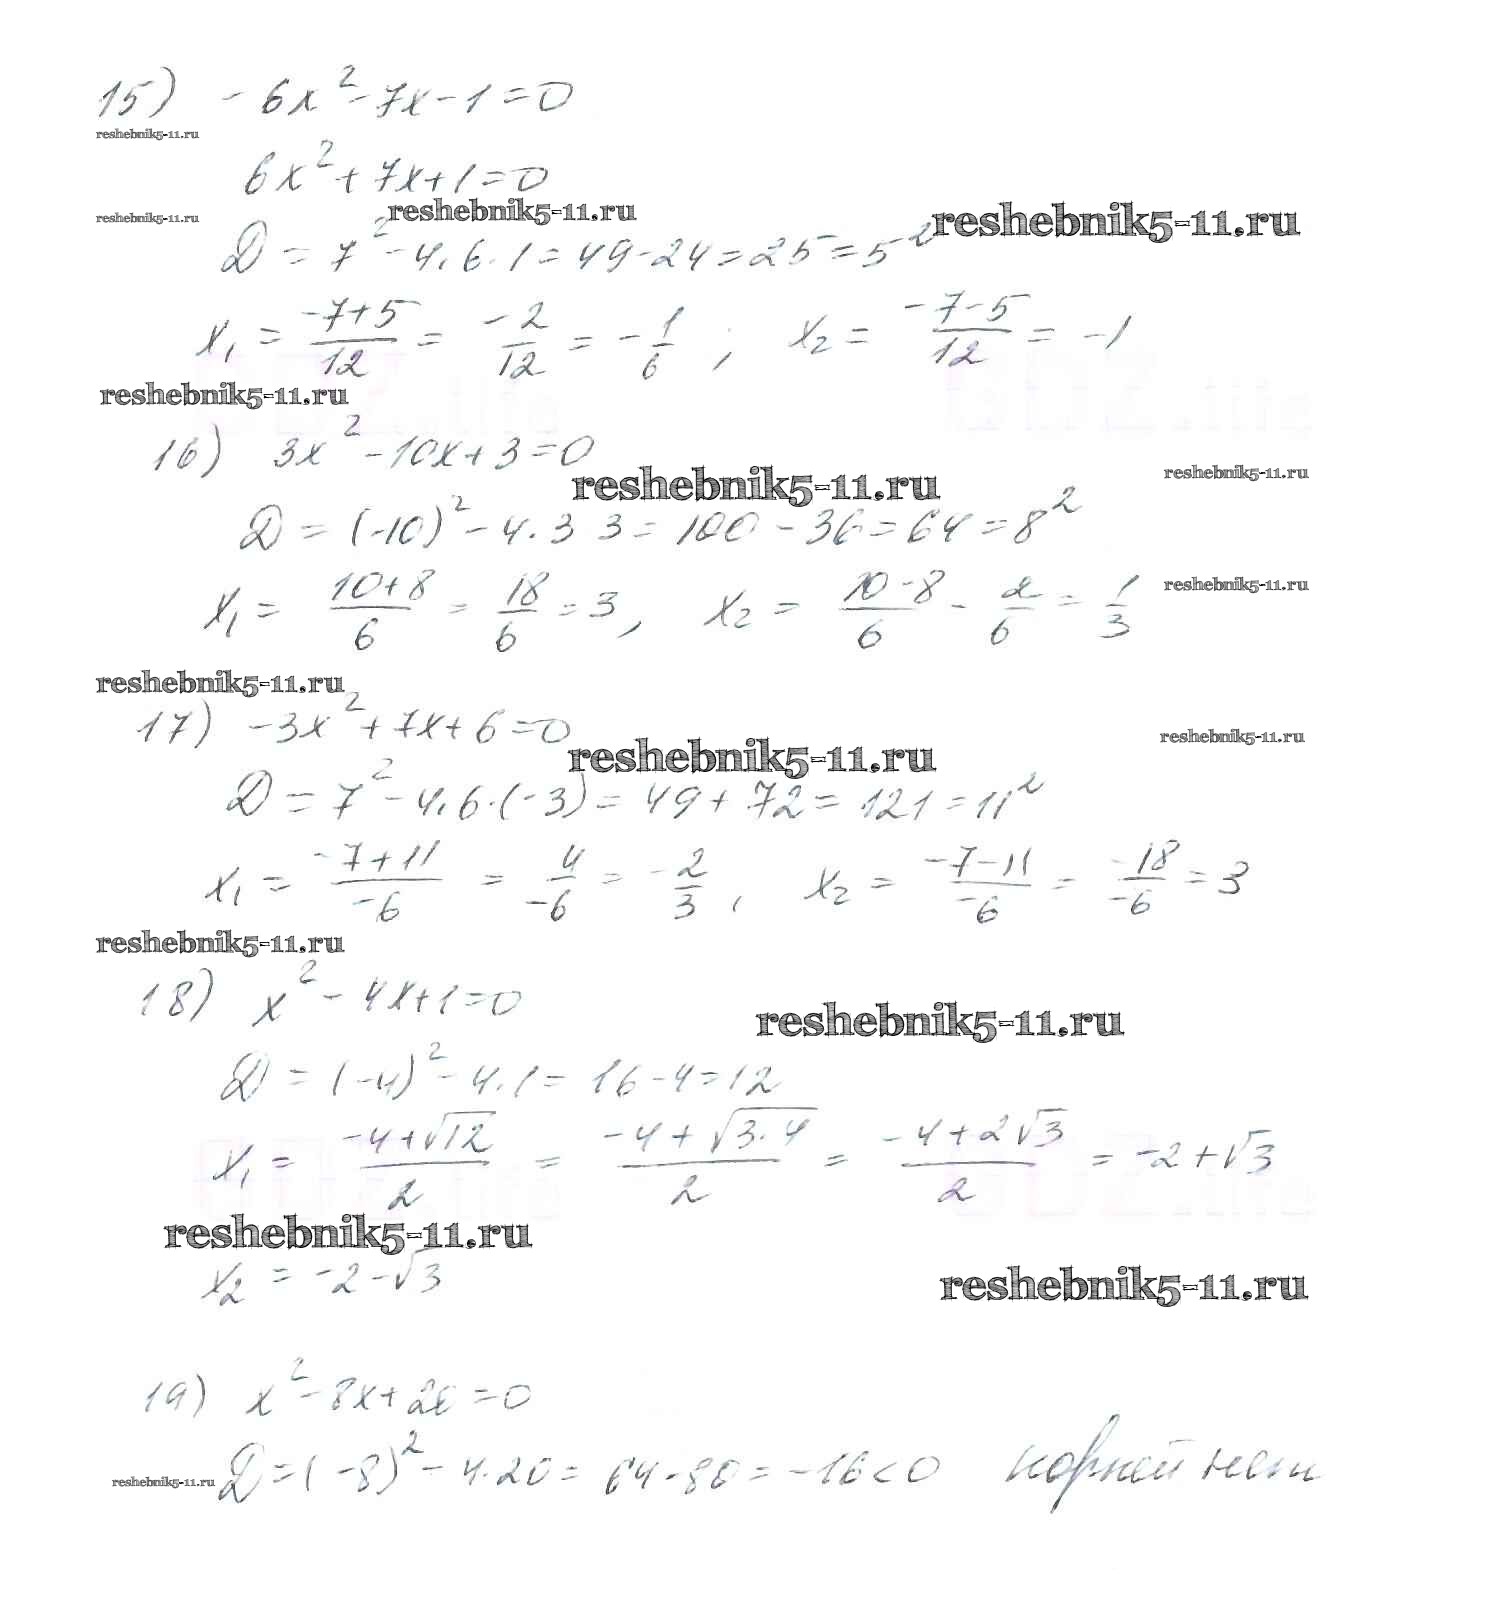 15) -6x²-7x-1=0
reshebnik5-11.ru
6x²+7x+1=0
reshebnik5-11.ru reshebnik5-11.ru reshebnik5-11.ru
D=7²-4·6·1=49-24=25=5²
x₁ = (-7+5)/12 = -2/12 = -1/6 ; x₂ = (-7-5)/12 = -1
reshebnik5-11.ru
16) 3x²-10x+3=0
reshebnik5-11.ru reshebnik5-11.ru
D=(-10)²-4·3 3=100-36=64=8²
x₁ = (10+8)/6 = 18/6 = 3, x₂ = (10-8)/6 - 2/6 = 1/3
reshebnik5-11.ru
reshebnik5-11.ru
17) -3x²+7x+6=0
reshebnik5-11.ru reshebnik5-11.ru
D=7²-4·6·(-3)=49+72=121=11²
x₁ = (-7+11)/-6 = 4/-6 = -2/3, x₂ = (-7-11)/-6 = -18/-6 = 3
reshebnik5-11.ru
18) x²-4x+1=0
reshebnik5-11.ru
D=(-4)²-4·1=16-4=12
x₁ = (-4+√12)/2 = (-4+√3·4)/2 = (-4+2√3)/2 = -2+√3
reshebnik5-11.ru
x₂ = -2-√3
reshebnik5-11.ru
19) x²-8x+20=0
D=(-8)²-4·20=64-80=-16<0 корней нет
reshebnik5-11.ru